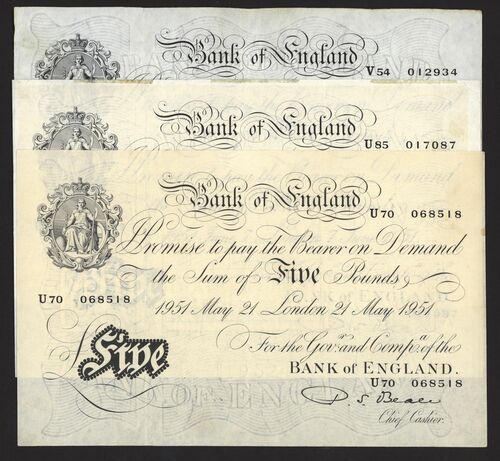 Bank of England
V54 012934
Bank of England
U85 017087
Bank of England
U70 068518
I Promise to pay the Bearer on Demand
the Sum of Five Pounds
U70 068518
1951 May 21 London 21 May 1951
For the Govr. and Compa. of the
£Five
BANK OF ENGLAND.
U70 068518
P. S. Beale
OF ENG
Chief Cashier.